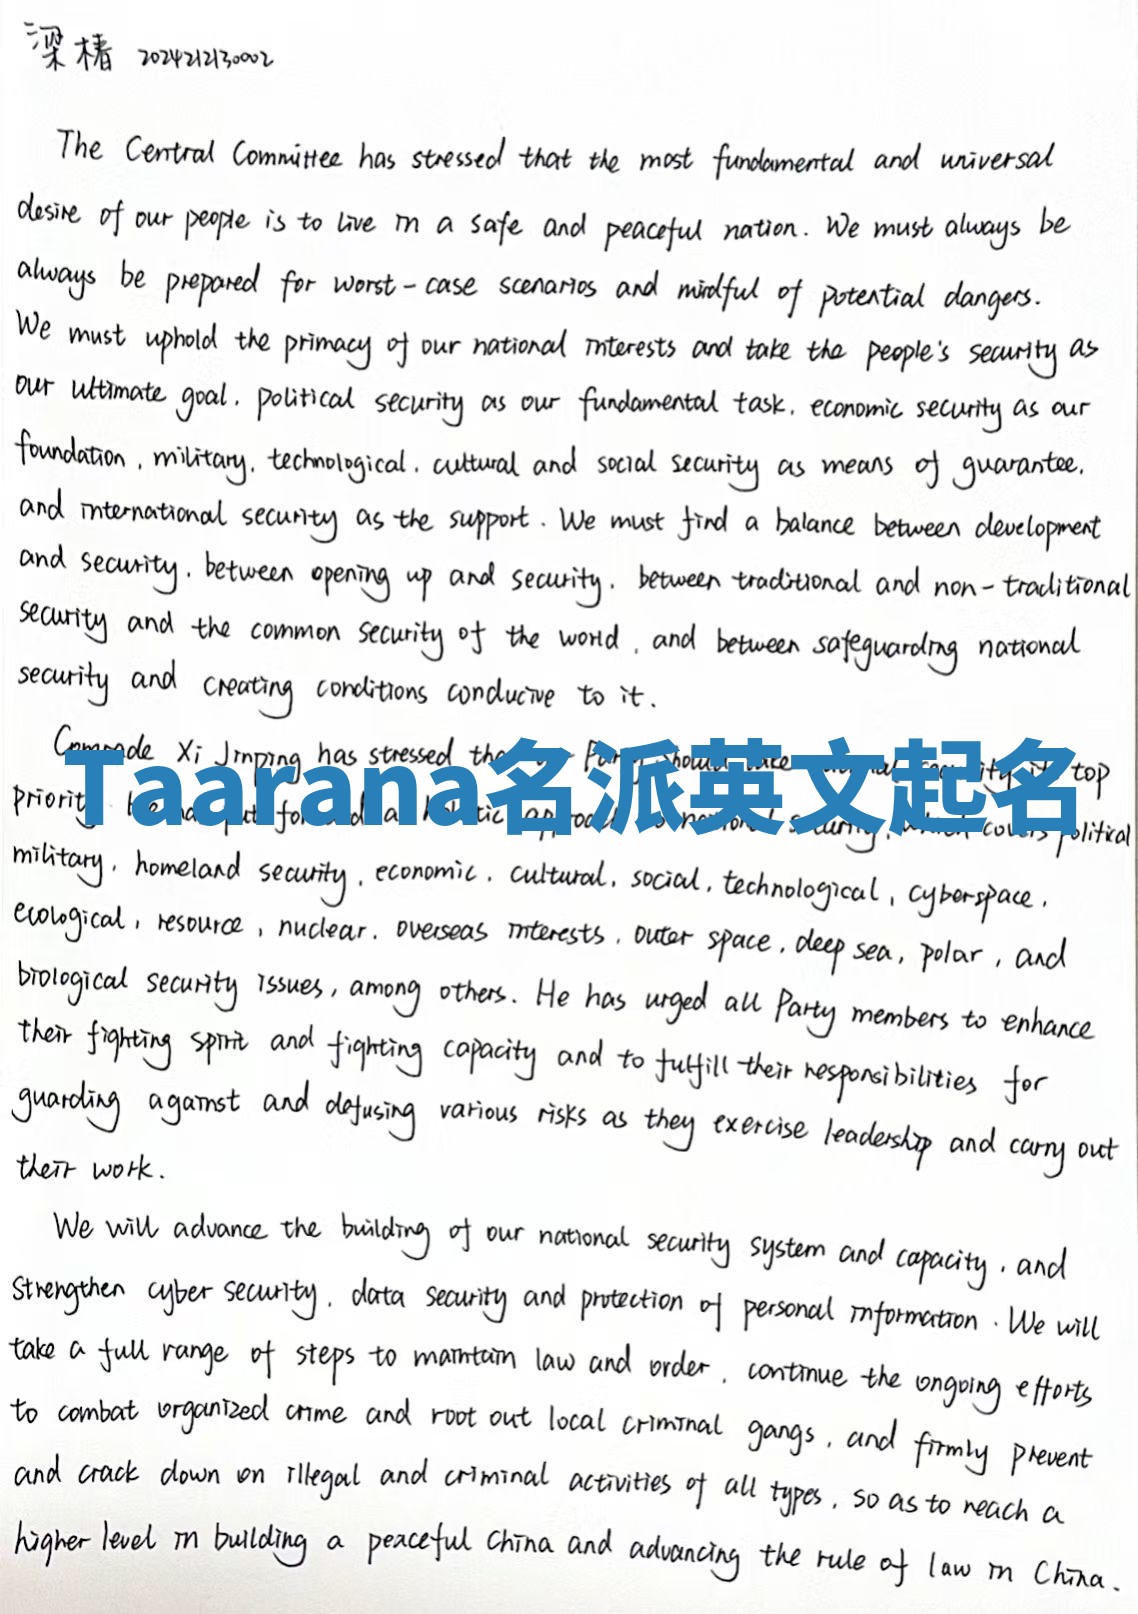 梁椿 2024212130002
The Central Committee has stressed that the most fundamental and universal
desire of our people is to live in a safe and peaceful nation. We must always be
always be prepared for worst-case scenarios and mindful of potential dangers.
We must uphold the primacy of our national interests and take the people's security as
our ultimate goal, political security as our fundamental task, economic security as our
foundation, military, technological, cultural and social security as means of guarantee,
and international security as the support. We must find a balance between development
and security, between opening up and security, between traditional and non-traditional
security and the common security of the world, and between safeguarding national
security and creating conditions conducive to it.
Comrade Xi Jinping has stressed Party should top
Taarana名派英文起名
priority put political
military, homeland security, economic, cultural, social, technological, cyberspace,
ecological, resource, nuclear, overseas interests, outer space, deep sea, polar, and
biological security issues, among others. He has urged all Party members to enhance
their fighting spirit and fighting capacity and to fulfill their responsibilities for
guarding against and defusing various risks as they exercise leadership and carry out
their work.
We will advance the building of our national security system and capacity, and
strengthen cyber security, data security and protection of personal information. We will
take a full range of steps to maintain law and order, continue the ongoing efforts
to combat organized crime and root out local criminal gangs, and firmly prevent
and crack down on illegal and criminal activities of all types, so as to reach a
higher level in building a peaceful China and advancing the rule of law in China.